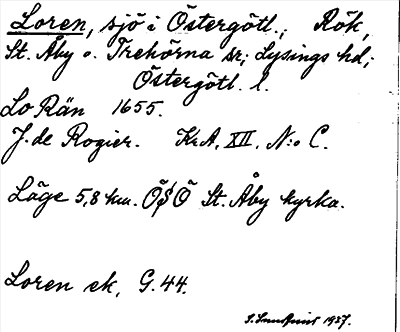 Loren, sjö i Östergötl.; Rök,
St. Åby o. Trehörna sr; Lysings hd;
Östergötl. l.
Lo Rän 1655.
J. de Rogier. KrA, XII, N:o C.
Läge 5,8 km. ÖSÖ St. Åby kyrka.
Loren ek, G. 44.
1937.